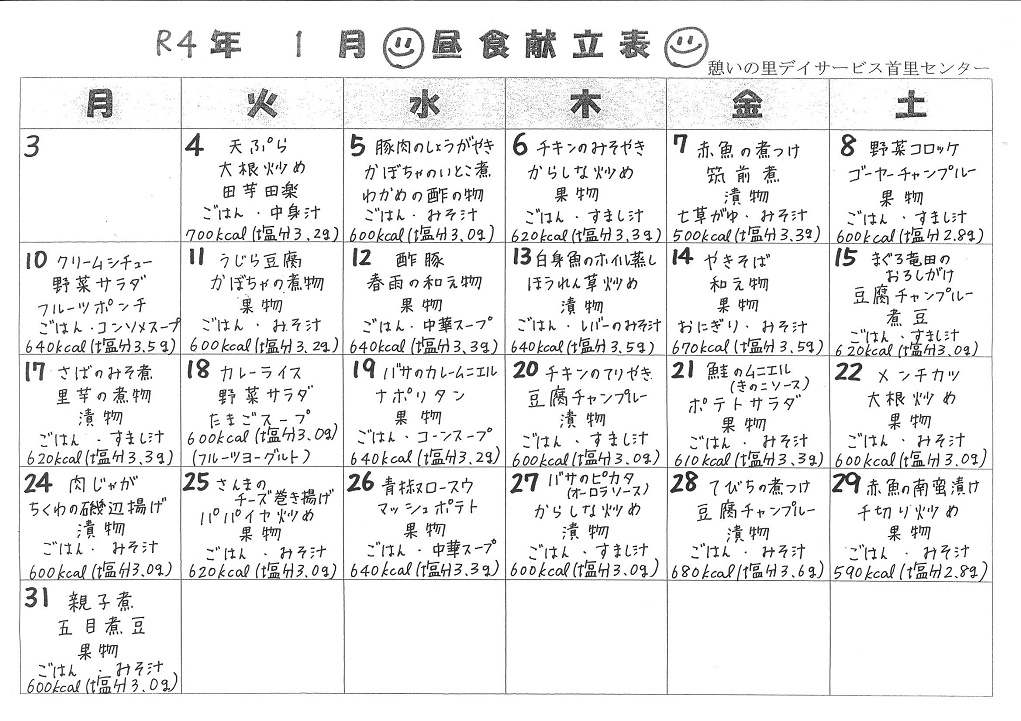 R4年 1月 昼食献立表
憩いの里デイサービス首里センター
月 火 水 木 金 土
3
4 天ぷら
大根炒め
田芋田楽
ごはん・中身汁
700kcal(塩分3.2g)
5 豚肉のしょうがやき
かぼちゃのいとこ煮
わかめの酢の物
ごはん・みそ汁
600kcal(塩分3.0g)
6 チキンのみそやき
からしな炒め
果物
ごはん・すまし汁
620kcal(塩分3.3g)
7 赤魚の煮つけ
筑前煮
漬物
七草がゆ・みそ汁
500kcal(塩分3.3g)
8 野菜コロッケ
ゴーヤーチャンプルー
果物
ごはん・すまし汁
600kcal(塩分2.8g)
10 クリームシチュー
野菜サラダ
フルーツポンチ
ごはん・コンソメスープ
640kcal(塩分3.5g)
11 うじら豆腐
かぼちゃの煮物
果物
ごはん・みそ汁
600kcal(塩分3.2g)
12 酢豚
春雨の和え物
果物
ごはん・中華スープ
640kcal(塩分3.3g)
13 白身魚のホイル蒸し
ほうれん草炒め
漬物
ごはん・レバーのみそ汁
640kcal(塩分3.5g)
14 やきそば
和え物
果物
おにぎり・みそ汁
670kcal(塩分3.5g)
15 まぐろ竜田の
おろしがけ
豆腐チャンプルー
煮豆
ごはん・すまし汁
620kcal(塩分3.0g)
17 さばのみそ煮
里芋の煮物
漬物
ごはん・すまし汁
620kcal(塩分3.3g)
18 カレーライス
野菜サラダ
たまごスープ
600kcal(塩分3.0g)
(フルーツヨーグルト)
19 バサのカレームニエル
ナポリタン
果物
ごはん・コーンスープ
640kcal(塩分3.2g)
20 チキンのてりやき
豆腐チャンプルー
漬物
ごはん・すまし汁
600kcal(塩分3.0g)
21 鮭のムニエル
(きのこソース)
ポテトサラダ
果物
ごはん・みそ汁
610kcal(塩分3.3g)
22 メンチカツ
大根炒め
果物
ごはん・みそ汁
600kcal(塩分3.0g)
24 肉じゃが
ちくわの磯辺揚げ
漬物
ごはん・みそ汁
600kcal(塩分3.0g)
25 さんまの
チーズ巻き揚げ
パパイヤ炒め
果物
ごはん・みそ汁
620kcal(塩分3.0g)
26 青椒ロースウ
マッシュポテト
果物
ごはん・中華スープ
640kcal(塩分3.3g)
27 バサのピカタ
(オーロラソース)
からしな炒め
漬物
ごはん・すまし汁
600kcal(塩分3.0g)
28 てびちの煮つけ
豆腐チャンプルー
漬物
ごはん・みそ汁
680kcal(塩分3.6g)
29 赤魚の南蛮漬け
千切り炒め
果物
ごはん・みそ汁
590kcal(塩分2.8g)
31 親子煮
五目煮豆
果物
ごはん・みそ汁
600kcal(塩分3.0g)